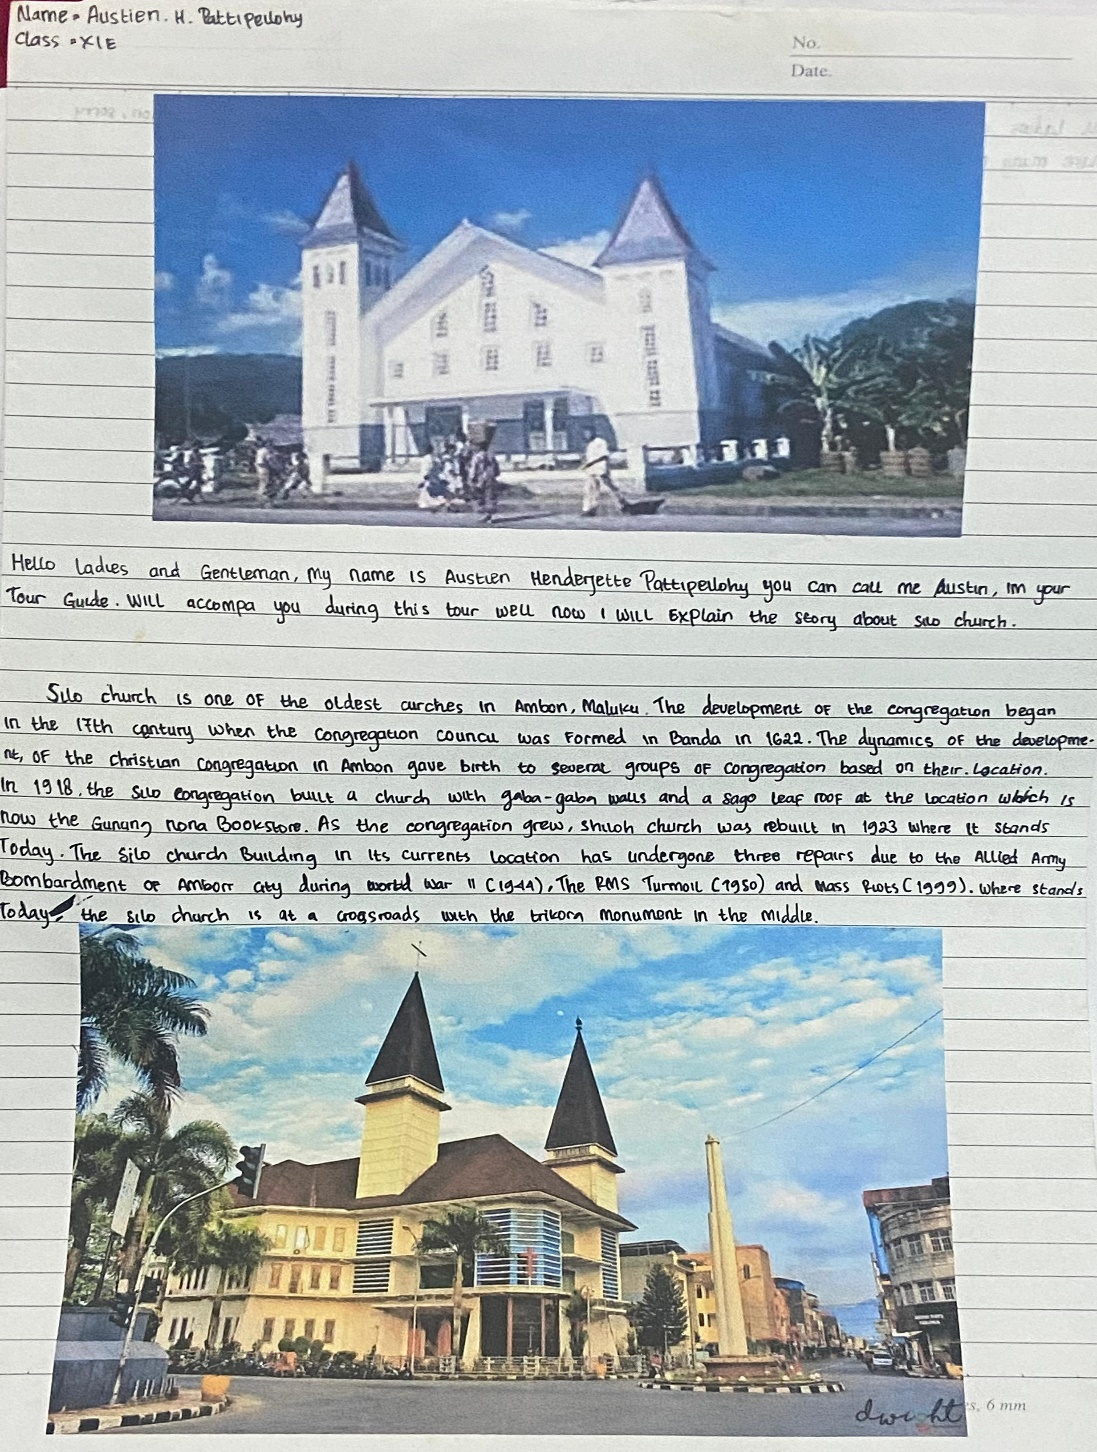 Name = Austien. H. Pattipeilohy
Class = XIE
No.
Date.
Hello Ladies and Gentleman, My name is Austien Henderjette Pattipeilohy you can call me Austin, im your
Tour Guide. Will accompa you during this tour well now I will Explain the story about silo church.
Silo church is one of the oldest curches in Ambon, Maluku. The development of the congregation began
in the 17th century when the congregation council was formed in Banda in 1622. The dynamics of the developme-
nt, of the christian congregation in Ambon gave birth to several groups of congregation based on their. Location.
In 1918, the silo congregation built a church with gaba-gaba walls and a sago leaf roof at the location which is
now the Gunung nona Bookstore. As the congregation grew, shiloh church was rebuilt in 1923 where it stands
Today. The silo church Building in its currents location has undergone three repairs due to the Allied Army
Bombardment of Ambon city during world war II (1944), The RMS Turmoil (1950) and Mass Riots (1999). Where stands
Today, the silo church is at a crossroads with the trikora monument in the middle.
dwight
es, 6 mm